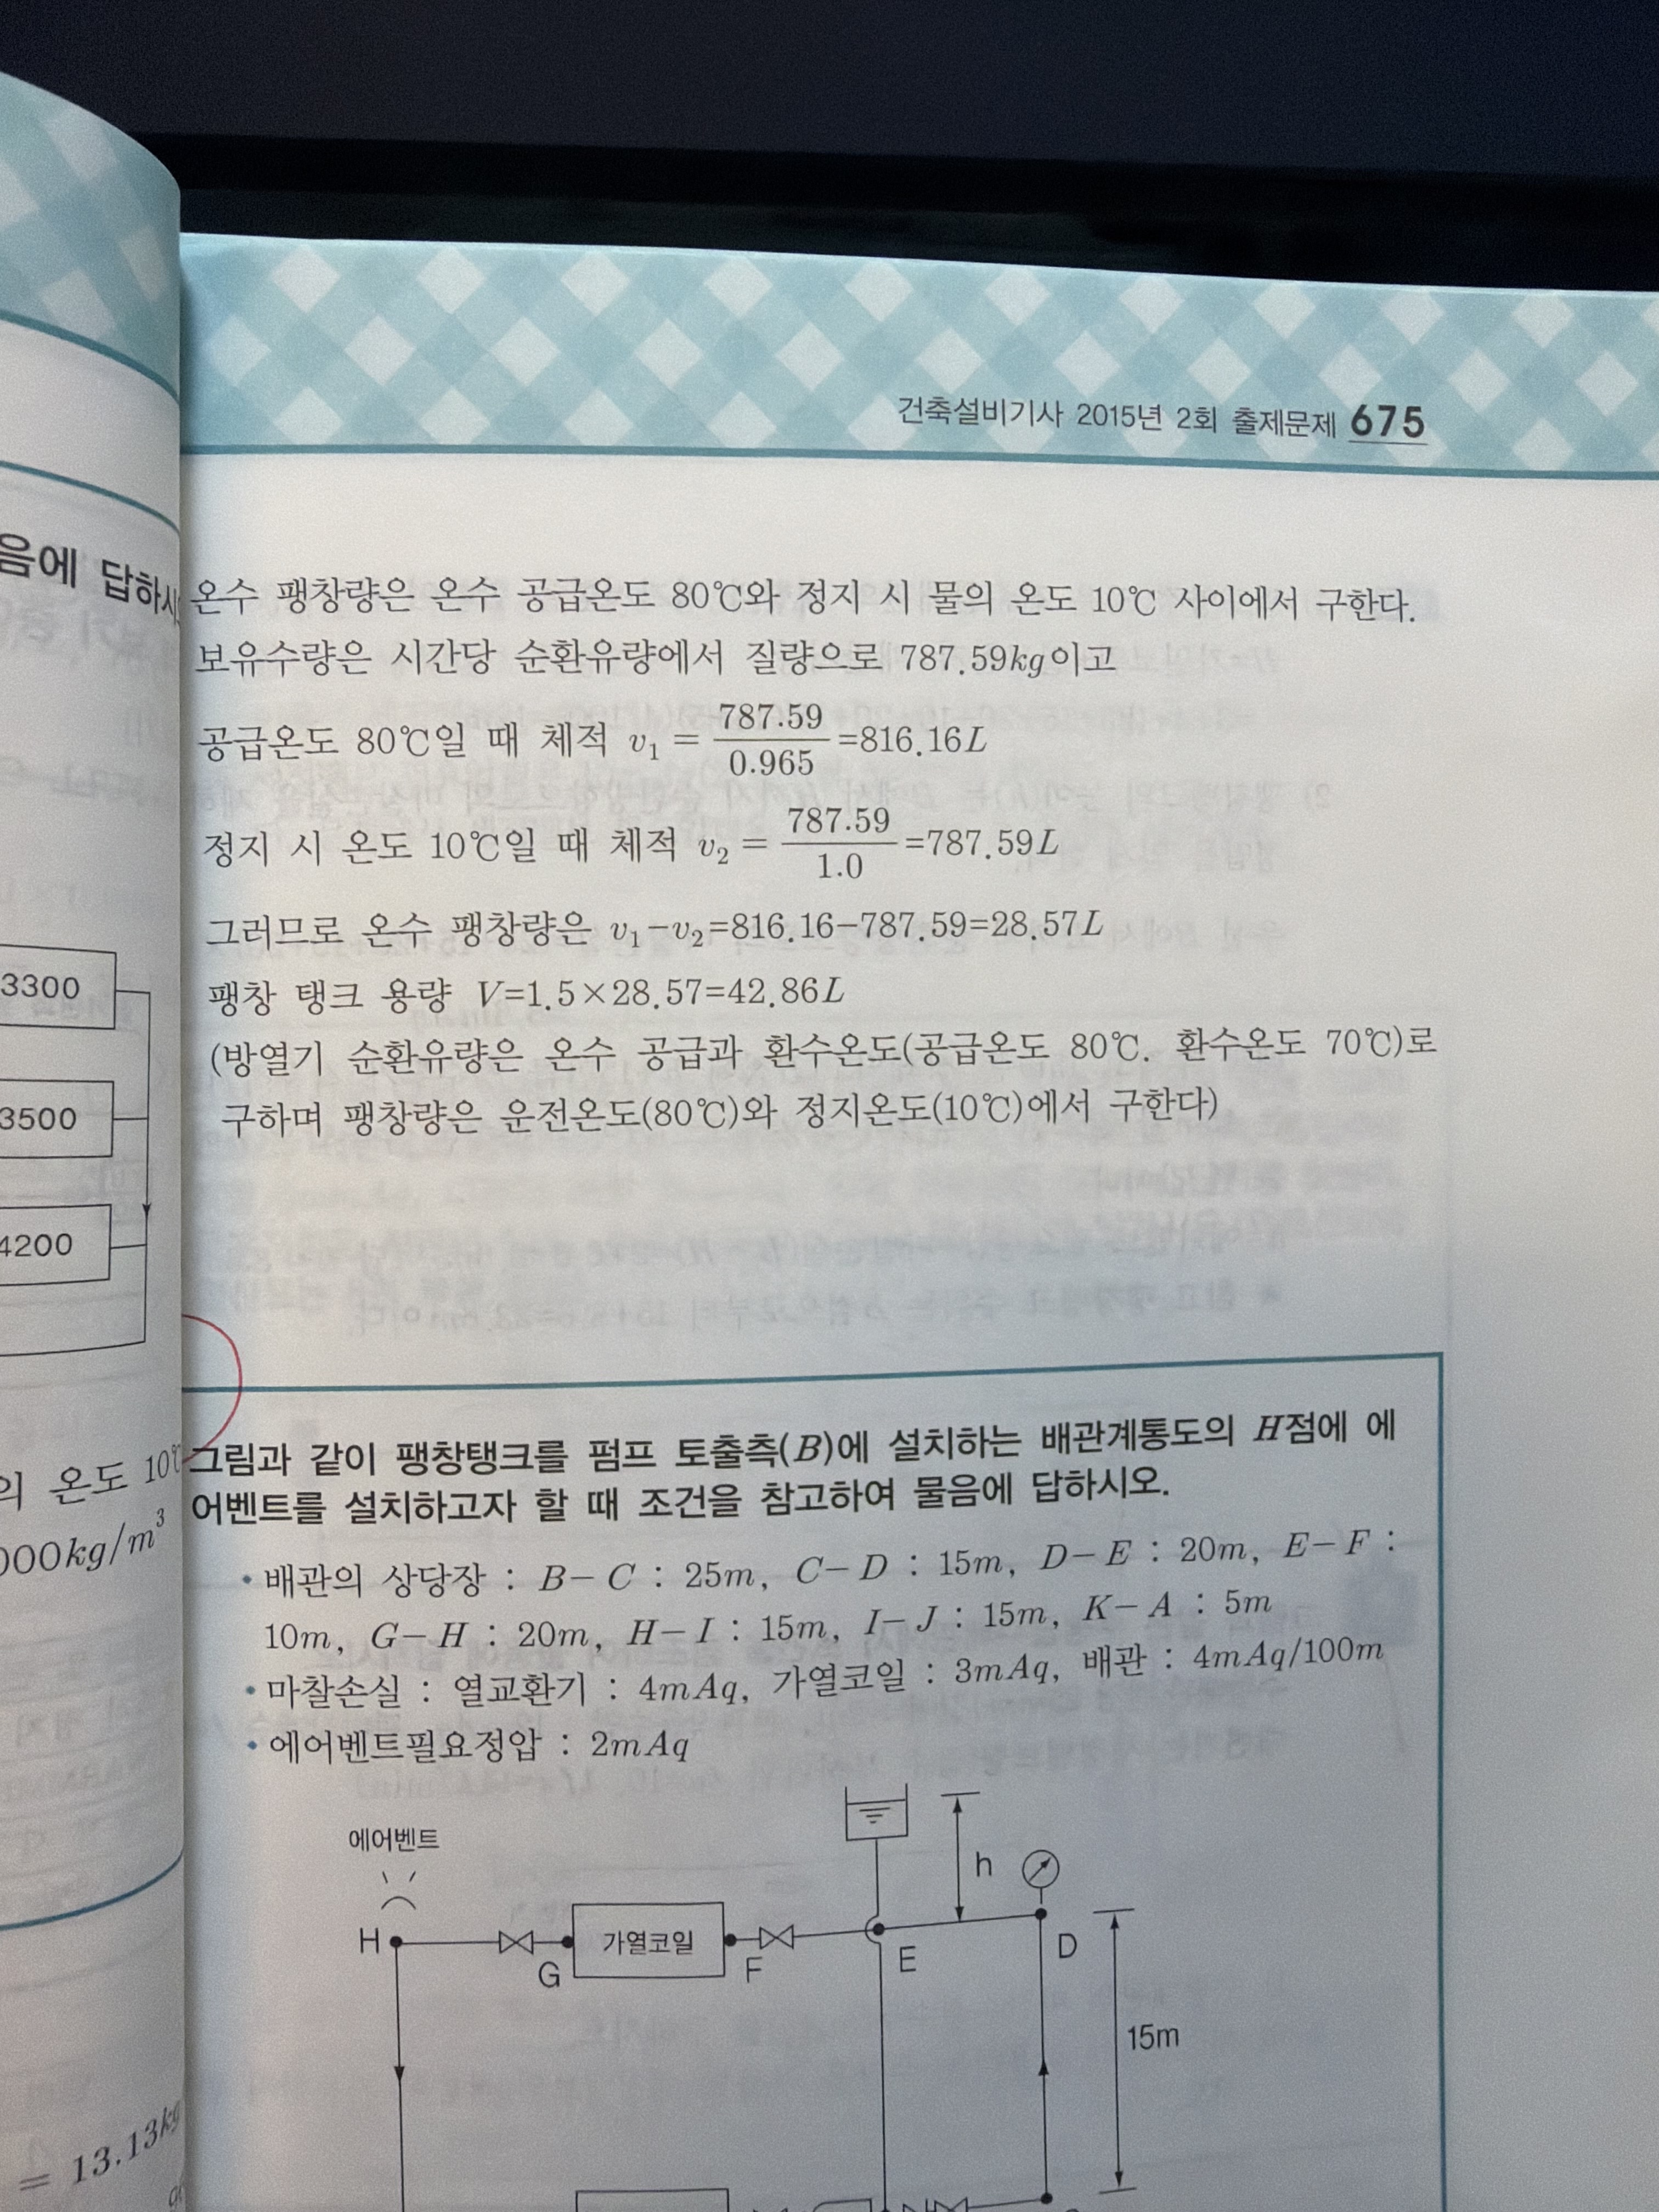 건축설비기사 2015년 2회 출제문제 675
음에 답하시
3300
3500
4200
의 온도 10℃
000kg/m³
= 13.13kg
온수 팽창량은 온수 공급온도 80℃와 정지 시 물의 온도 10℃ 사이에서 구한다.
보유수량은 시간당 순환유량에서 질량으로 787.59kg이고
공급온도 80℃일 때 체적 v₁ = 787.59/0.965 =816.16L
정지 시 온도 10℃일 때 체적 v₂ = 787.59/1.0 =787.59L
그러므로 온수 팽창량은 v₁-v₂=816.16-787.59=28.57L
팽창 탱크 용량 V=1.5×28.57=42.86L
(방열기 순환유량은 온수 공급과 환수온도(공급온도 80℃. 환수온도 70℃)로
구하며 팽창량은 운전온도(80℃)와 정지온도(10℃)에서 구한다)
그림과 같이 팽창탱크를 펌프 토출측(B)에 설치하는 배관계통도의 H점에 에
어벤트를 설치하고자 할 때 조건을 참고하여 물음에 답하시오.
• 배관의 상당장 : B-C : 25m, C-D : 15m, D-E : 20m, E-F :
10m, G-H : 20m, H-I : 15m, I-J : 15m, K-A : 5m
• 마찰손실 : 열교환기 : 4mAq, 가열코일 : 3mAq, 배관 : 4mAq/100m
• 에어벤트필요정압 : 2mAq
에어벤트
h
H
가열코일
G
F
E
D
15m